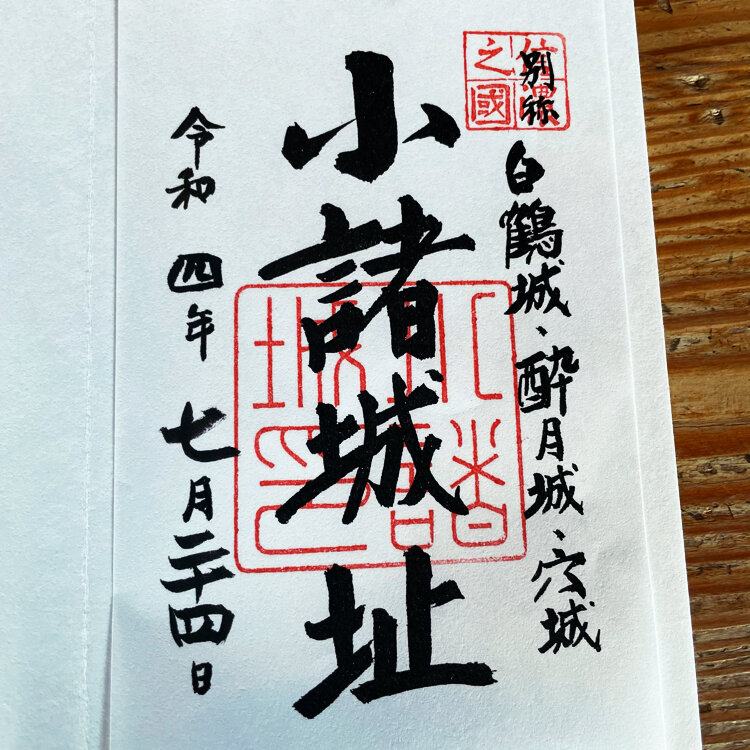 別称 白鶴城・酔月城・穴城
信濃之國
小諸城址
令和四年七月二十四日